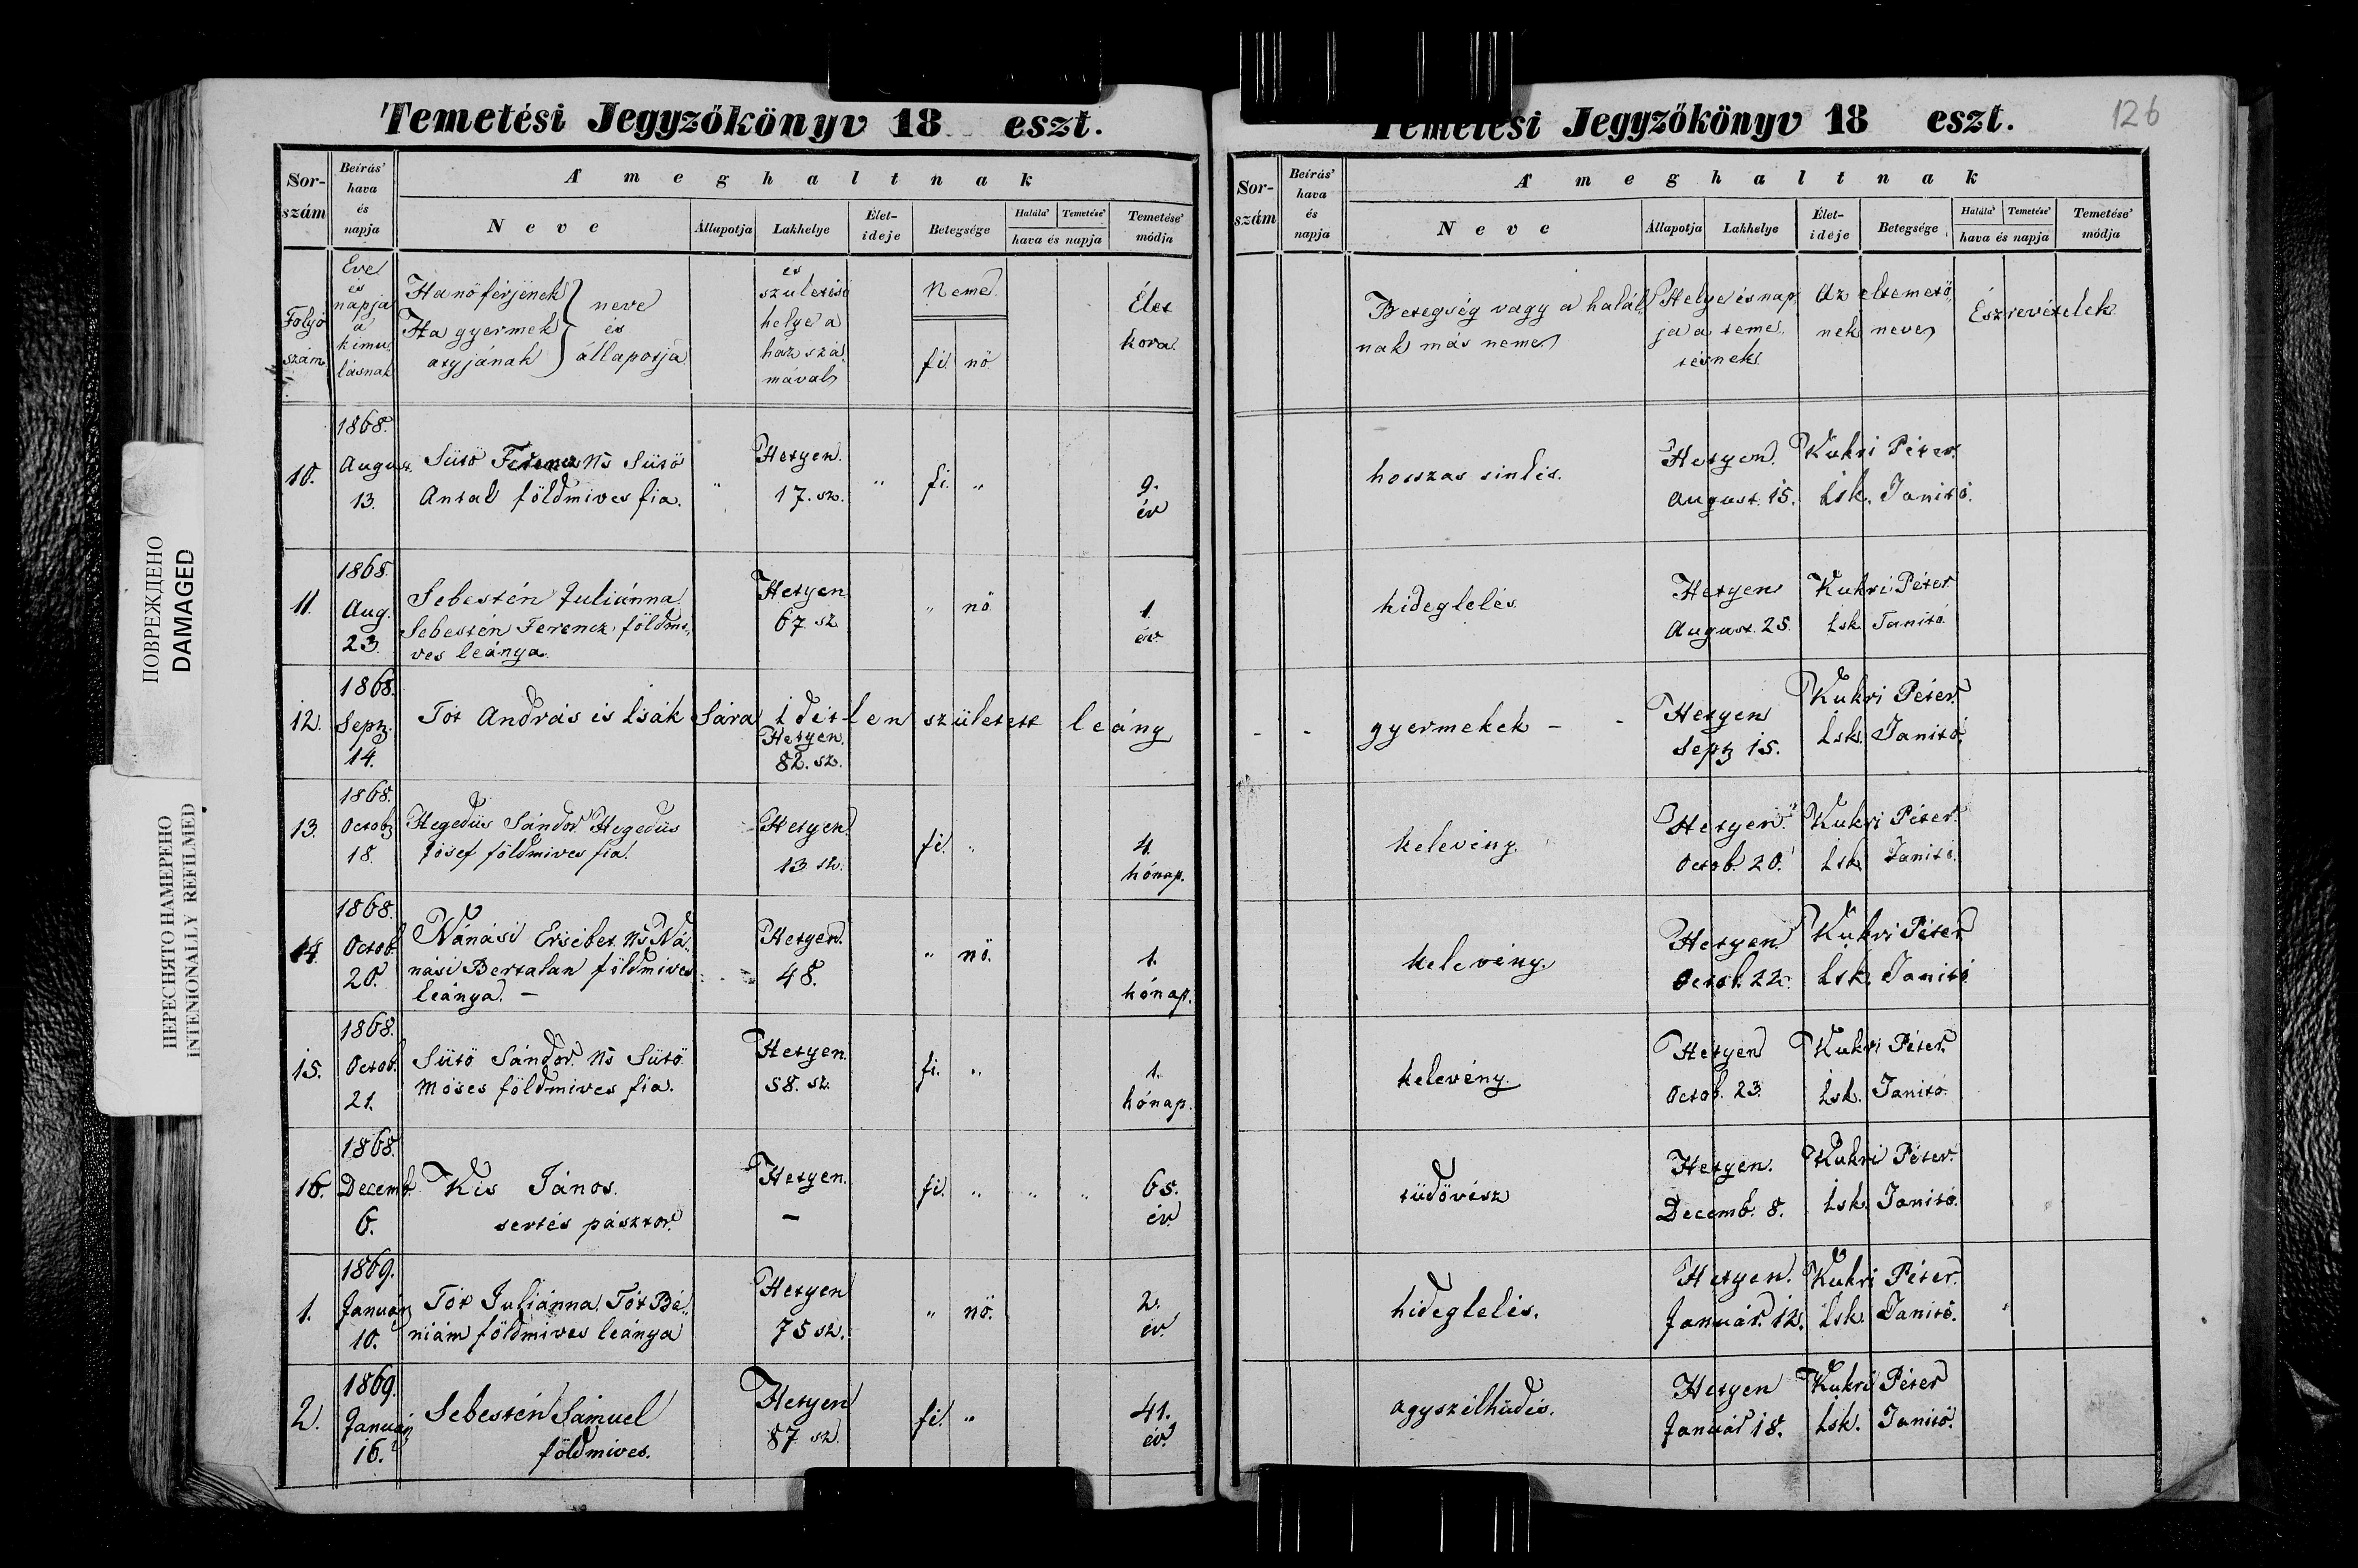 Temetési Jegyzőkönyv 18 eszt.
Sor-szám
Beírás' hava és napja
A' meghaltnak
Neve
Állapotja
Lakhelye
Élet-ideje
Betegsége
Halála' Temetése'
hava és napja
Temetése' módja
Folyó szám
Eve és napja a kimulásnak
Ha nő férjének
Ha gyermek atyjának
neve és állapotja
és születési helye a ház számával
Neme
fi. nő
Élet kora.
10.
1868. August. 13.
Sütő Ferencz Ns Sütő
Antal földmives fia.
"
Hetyen.
17. sz.
"
fi. "
9. év
11.
1868. Aug. 23.
Sebestén Juliánna
Sebestén Ferencz földmi,,
ves leánya.
Hetyen
67. sz
" nő
1. év
12.
1868. Sept. 14.
Tót András és Isák Sára idétlen született leány
Hetyen.
82. sz.
13.
1868. Octob. 18.
Hegedüs Sándor Hegedüs
Jósef földmives fia.
Hetyen
13 sz.
fi. "
4. hónap.
14.
1868. Octob. 20.
Nánási Ersébet. Ns Ná,,
nási Bertalan földmives
leánya. –
Hetyen.
48.
" nő.
1. hónap.
15.
1868. Octob. 21.
Sütő Sándor. Ns Sütő
Móses földmives fia.
Hetyen
58. sz.
fi. "
1. hónap.
16.
1868. Decemb. 6.
Kis János.
sertés pásztor.
Hetyen.
–
fi. " " "
65. év
1.
1869. Január 10.
Tót Juliánna. Tót Bé,,
niám földmives leánya
Hetyen
75 sz.
" nő.
2. év.
2.
1869. Január 16.
Sebestén Sámuel
földmives.
Hetyen
87 sz.
fi. "
41. év.
Temetési Jegyzőkönyv 18 eszt.
126
Sor-szám
Beírás' hava és napja
A' meghaltnak
Neve
Állapotja
Lakhelye
Élet-ideje
Betegsége
Halála' Temetése'
hava és napja
Temetése' módja
Betegség vagy a halál,,
nak más neme
Helye és nap,,
ja a teme,,
tésnek
Az eltemető,,
nek neve
Észrevételek
hosszas sinlés.
Hetyen.
August. 15.
Kukri Péter.
Isk. Tanitó.
hideglelés
Hetyen
August. 25.
Kukri Péter.
Isk. Tanitó.
- - gyermekek – -
Hetyen
Sept 15.
Kukri Péter.
Isk. Tanitó.
kelevény.
Hetyen.
Octob. 20.
Kukri Péter.
Isk Tanitó.
kelevény.
Hetyen.
Octob. 22.
Kukri Péter.
Isk. Tanitó
kelevény.
Hetyen
Octob. 23.
Kukri Péter.
Isk. Tanitó.
tüdővész
Hetyen.
Decemb. 8.
Kukri Péter.
Isk. Tanitó.
hideglelés.
Hetyen.
Január. 12.
Kukri Péter.
Isk. Tanitó.
agyszélhüdés.
Hetyen
Január 18.
Kukri Péter
Isk. Tanitó.
ПОВРЕЖДЕНО
DAMAGED
ПЕРЕСНЯТО НАМЕРЕНО
INTENIONALLY REFILMED